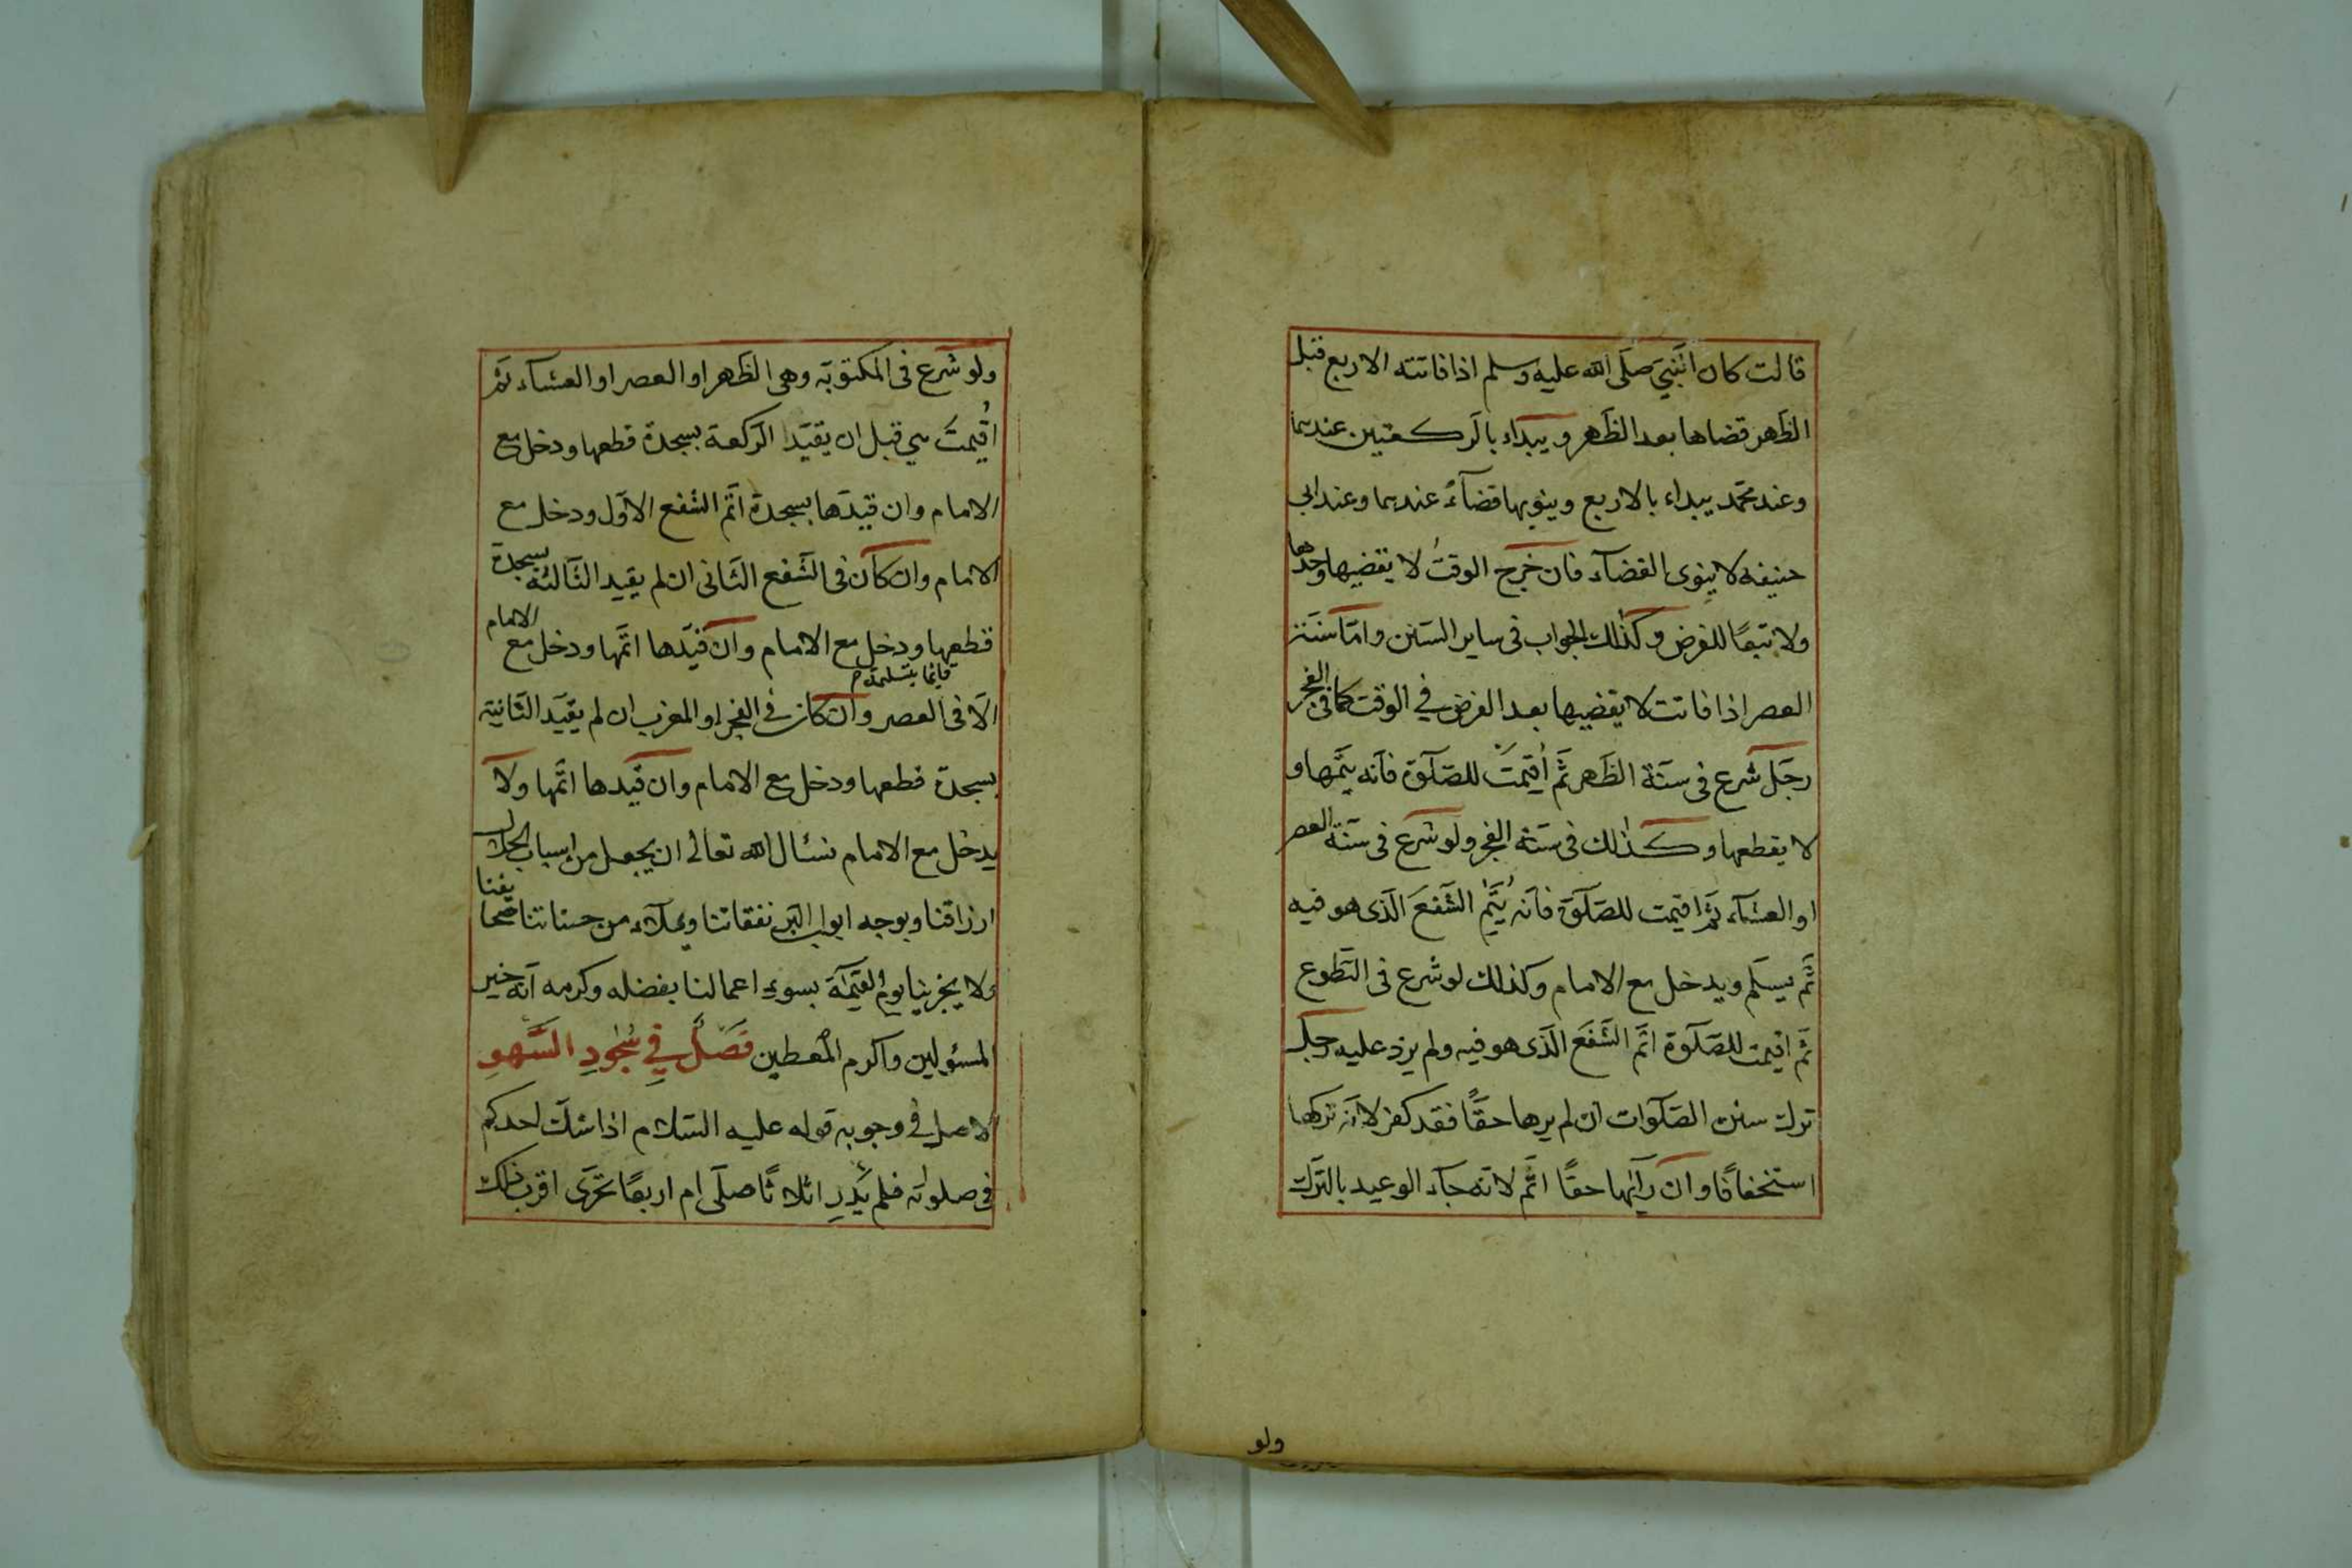 قالت كان النّبيّ صلّى الله عليه وسلم اذا فاتته الاربع قبل
الظّهر قضاها بعد الظّهر ويبداء بالرّكعتين عندهما
وعند محمّد يبداء بالاربع وينويها قضآءً عندهما وعند ابى
حنيفه لا ينوى القضآء فان خرج الوقتُ لا يقضيها وحدها
ولا تبعًا للفرض وكذلك الجواب فى ساير السّنن وامّا سنّة
العصر اذا فاتت لا يقضيها بعد الفرض في الوقت كما فى الفجر
رجل شرع فى سنّة الظّهر ثمّ اُقيمتَ للصّلٰوة فانّه يتمّها و
لا يقطعها وكذلك فى سنّة الفجر ولو شرع فى سنّة العصر
او العشآء ثمّ اقيمت للصّلٰوة فانّه يُتمّ الشّفعَ الّذى هو فيه
ثمّ يسلّم ويدخل مع الامام وكذلك لو شرع فى التّطوع
ثمّ اقيمت للصّلٰوة اتمّ الشّفعَ الّذى هو فيه ولم يزد عليه رجل
ترك سنن الصّلٰوات ان لم يرها حقًّا فقد كفر لانّه تركها
استخفافًا وان رآيٰها حقًّا اثم لانّه جآء الوعيد بالترك
ولو
ولو شرع فى المكتوبة وهى الظّهر او العصر او العشآء ثمّ
اُقيمتَ هي قبل ان يقيّد الرّكعة بسجدة قطعها ودخل مع
الامام وان قيدّها بسجدة اتّم الشّفع الاوّل ودخل مع
الامام وان كان فى الشّفع الثّانى ان لم يقيد الثّالثة بسجدة
قطعها ودخل مع الامام وان قيدّها اتّمها ودخل مع الامام
قايما بتسليمة
الّا فى العصر وان كان في الفجر او المغرب ان لم يقيّد الثّانية
بسجدة قطعها ودخل مع الامام وان قيّدها اتّمها ولا
يدخل مع الامام نسئال الله تعالى ان يجعل من اسباب الحلال
ارزاقنا وبوجه ابواب البّر نفقاتنا ويملآء من حسناتنا صحايفنا
ولا يخزينا يوم القيٰمة بسوء اعمالنا بفضله وكرمه انّه خير
المسئولين واكرم المعطين فَصْلٌ فِي سُجُودِ السَّهوِ
الاصل في وجوبه قوله عليه السّلام اذا شكّ احدكم
فى صلوته فلم يَدرِ اثلاثًا صلّى ام اربعًا تحرّى اقرب ذلك